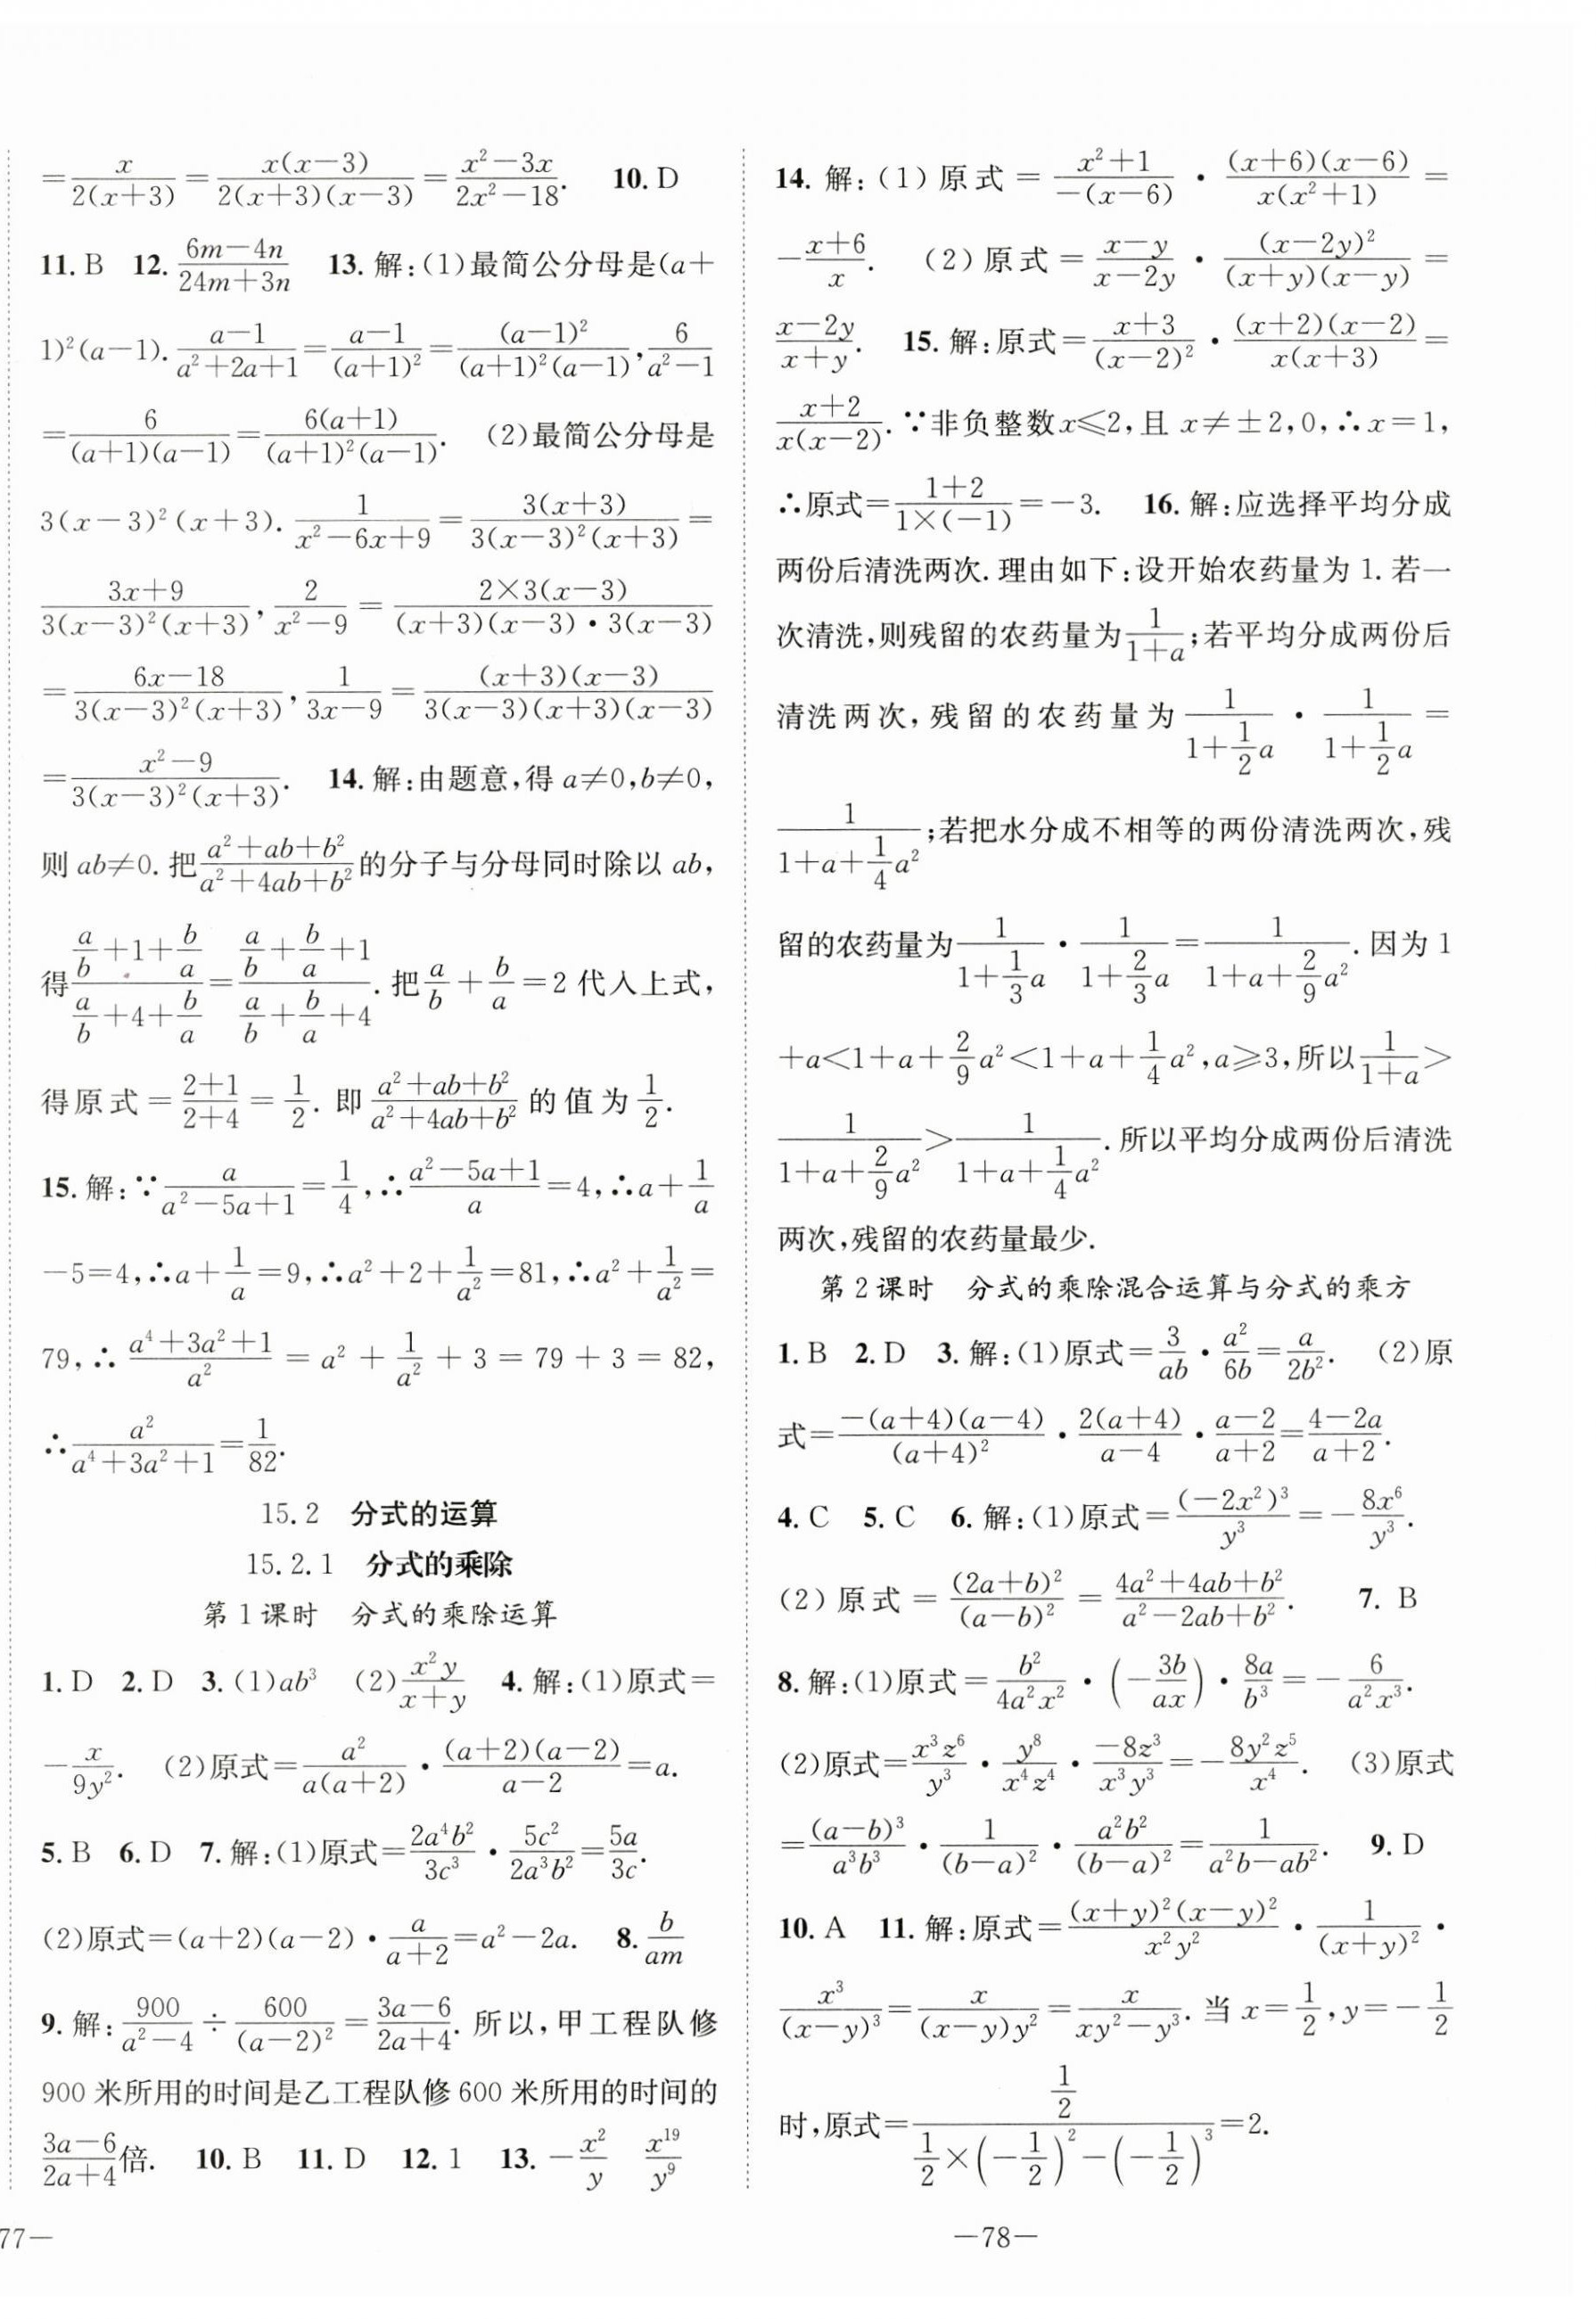 =x/(2(x+3))=x(x-3)/(2(x+3)(x-3))=(x²-3x)/(2x²-18). 10. D
11. B 12. (6m-4n)/(24m+3n) 13. 解:(1)最简公分母是(a+
1)²(a-1). (a-1)/(a²+2a+1)=(a-1)/(a+1)²=(a-1)²/((a+1)²(a-1)), 6/(a²-1)
=6/((a+1)(a-1))=6(a+1)/((a+1)²(a-1)). (2)最简公分母是
3(x-3)²(x+3). 1/(x²-6x+9)=3(x+3)/(3(x-3)²(x+3))=
(3x+9)/(3(x-3)²(x+3)), 2/(x²-9)=2×3(x-3)/((x+3)(x-3)·3(x-3))
=(6x-18)/(3(x-3)²(x+3)), 1/(3x-9)=(x+3)(x-3)/(3(x-3)(x+3)(x-3))
=(x²-9)/(3(x-3)²(x+3)). 14. 解:由题意,得 a≠0,b≠0,
则 ab≠0. 把(a²+ab+b²)/(a²+4ab+b²)的分子与分母同时除以 ab,
得(a/b+1+b/a)/(a/b+4+b/a)=(a/b+b/a+1)/(a/b+b/a+4). 把 a/b+b/a=2 代入上式,
得原式=(2+1)/(2+4)=1/2. 即(a²+ab+b²)/(a²+4ab+b²)的值为1/2.
15. 解:∵a/(a²-5a+1)=1/4,∴(a²-5a+1)/a=4,∴a+1/a
-5=4,∴a+1/a=9,∴a²+2+1/a²=81,∴a²+1/a²=
79,∴(a⁴+3a²+1)/a²=a²+1/a²+3=79+3=82,
∴a²/(a⁴+3a²+1)=1/82.
15.2 分式的运算
15.2.1 分式的乘除
第1课时 分式的乘除运算
1. D 2. D 3. (1)ab³ (2)x²y/(x+y) 4. 解:(1)原式=
-x/(9y²). (2)原式=a²/(a(a+2))·(a+2)(a-2)/(a-2)=a.
5. B 6. D 7. 解:(1)原式=2a⁴b²/(3c³)·5c²/(2a³b²)=5a/(3c).
(2)原式=(a+2)(a-2)·a/(a+2)=a²-2a. 8. b/(am)
9. 解:900/(a²-4)÷600/(a-2)²=(3a-6)/(2a+4). 所以,甲工程队修
900 米所用的时间是乙工程队修 600 米所用的时间的
(3a-6)/(2a+4)倍. 10. B 11. D 12. 1 13. -x²/y x¹⁹/y⁹
77—
14. 解:(1)原式=(x²+1)/(-(x-6))·(x+6)(x-6)/(x(x²+1))=
-(x+6)/x. (2)原式=(x-y)/(x-2y)·(x-2y)²/((x+y)(x-y))=
(x-2y)/(x+y). 15. 解:原式=(x+3)/(x-2)²·(x+2)(x-2)/(x(x+3))=
(x+2)/(x(x-2)). ∵非负整数x≤2,且 x≠±2,0,∴x=1,
∴原式=(1+2)/(1×(-1))=-3. 16. 解:应选择平均分成
两份后清洗两次. 理由如下:设开始农药量为 1. 若一
次清洗,则残留的农药量为1/(1+a);若平均分成两份后
清洗两次,残留的农药量为1/(1+½a)·1/(1+½a)=
1/(1+a+¼a²);若把水分成不相等的两份清洗两次,残
留的农药量为1/(1+⅓a)·1/(1+⅔a)=1/(1+a+(2/9)a²). 因为 1
+a<1+a+(2/9)a²<1+a+¼a²,a≥3,所以1/(1+a)>
1/(1+a+(2/9)a²)>1/(1+a+¼a²). 所以平均分成两份后清洗
两次,残留的农药量最少.
第2课时 分式的乘除混合运算与分式的乘方
1. B 2. D 3. 解:(1)原式=3/(ab)·a²/(6b)=a/(2b²). (2)原
式=-(a+4)(a-4)/(a+4)²·2(a+4)/(a-4)·(a-2)/(a+2)=(4-2a)/(a+2).
4. C 5. C 6. 解:(1)原式=(-2x²)³/y³=-8x⁶/y³.
(2)原式=(2a+b)²/(a-b)²=(4a²+4ab+b²)/(a²-2ab+b²). 7. B
8. 解:(1)原式=b²/(4a²x²)·(-3b/(ax))·8a/b³=-6/(a²x³).
(2)原式=x³z⁶/y³·y⁸/(x⁴z⁴)·-8z³/(x³y³)=-8y²z⁵/x⁴. (3)原式
=(a-b)³/(a³b³)·1/(b-a)²·a²b²/(b-a)²=1/(a²b-ab²). 9. D
10. A 11. 解:原式=(x+y)²(x-y)²/(x²y²)·1/(x+y)²·
x³/(x-y)³=x/((x-y)y²)=x/(xy²-y³). 当 x=1/2,y=-1/2
时,原式=(1/2)/(1/2×(-1/2)²-(-1/2)³)=2.
—78—